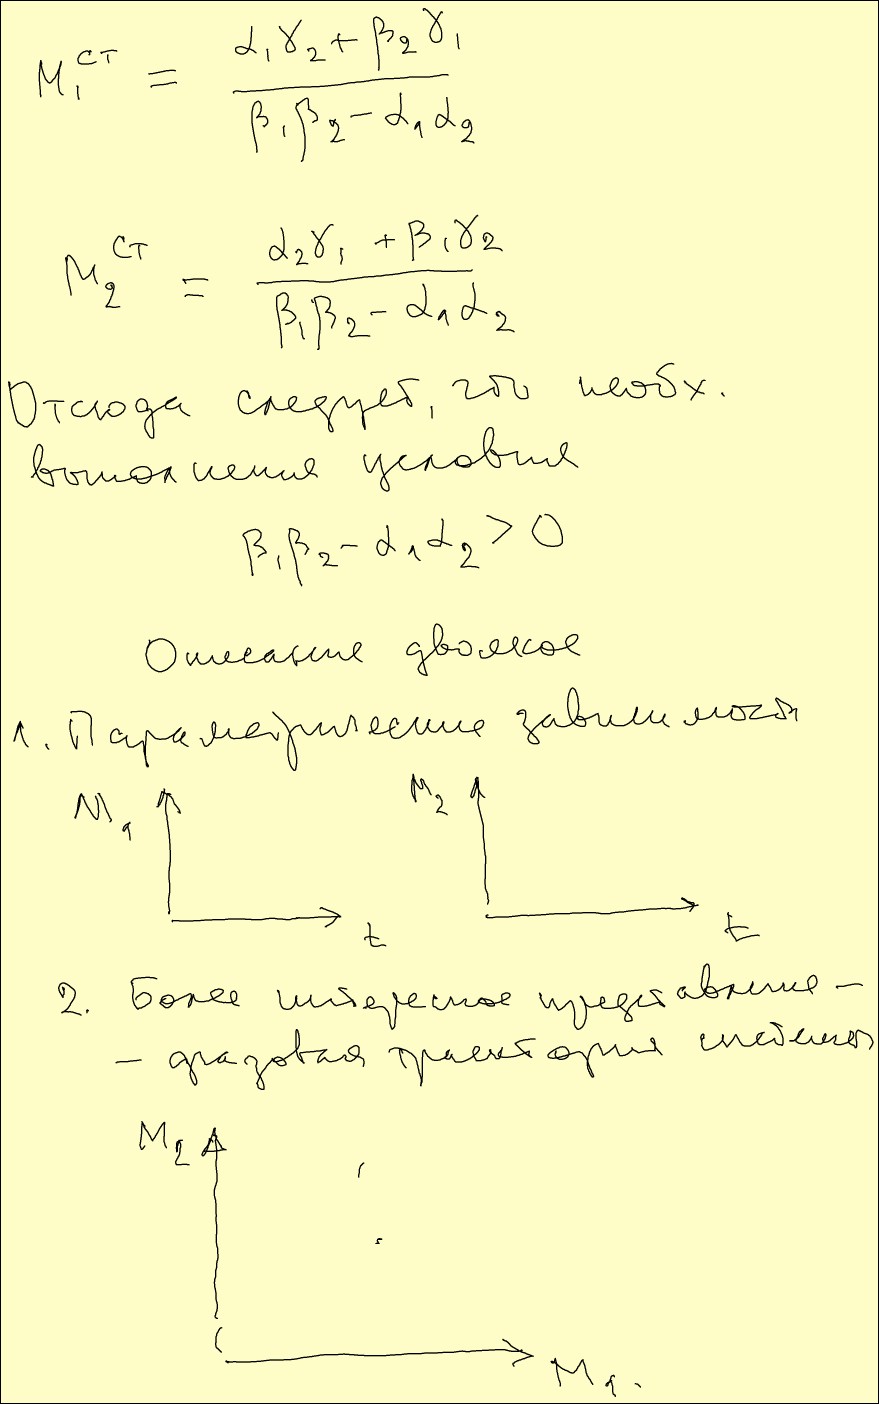 M₁ᶜᵀ = (α₁γ₂ + β₂γ₁) / (β₁β₂ − α₁α₂)
M₂ᶜᵀ = (α₂γ₁ + β₁γ₂) / (β₁β₂ − α₁α₂)
Отсюда следует, что необх.
выполнения условия
β₁β₂ − α₁α₂ > 0
Описание двоякое
1. Параметрические зависимости
M₁ M₂
t t
2. Более интересное представление –
– фазовая траектория системы
M₂
M₁.